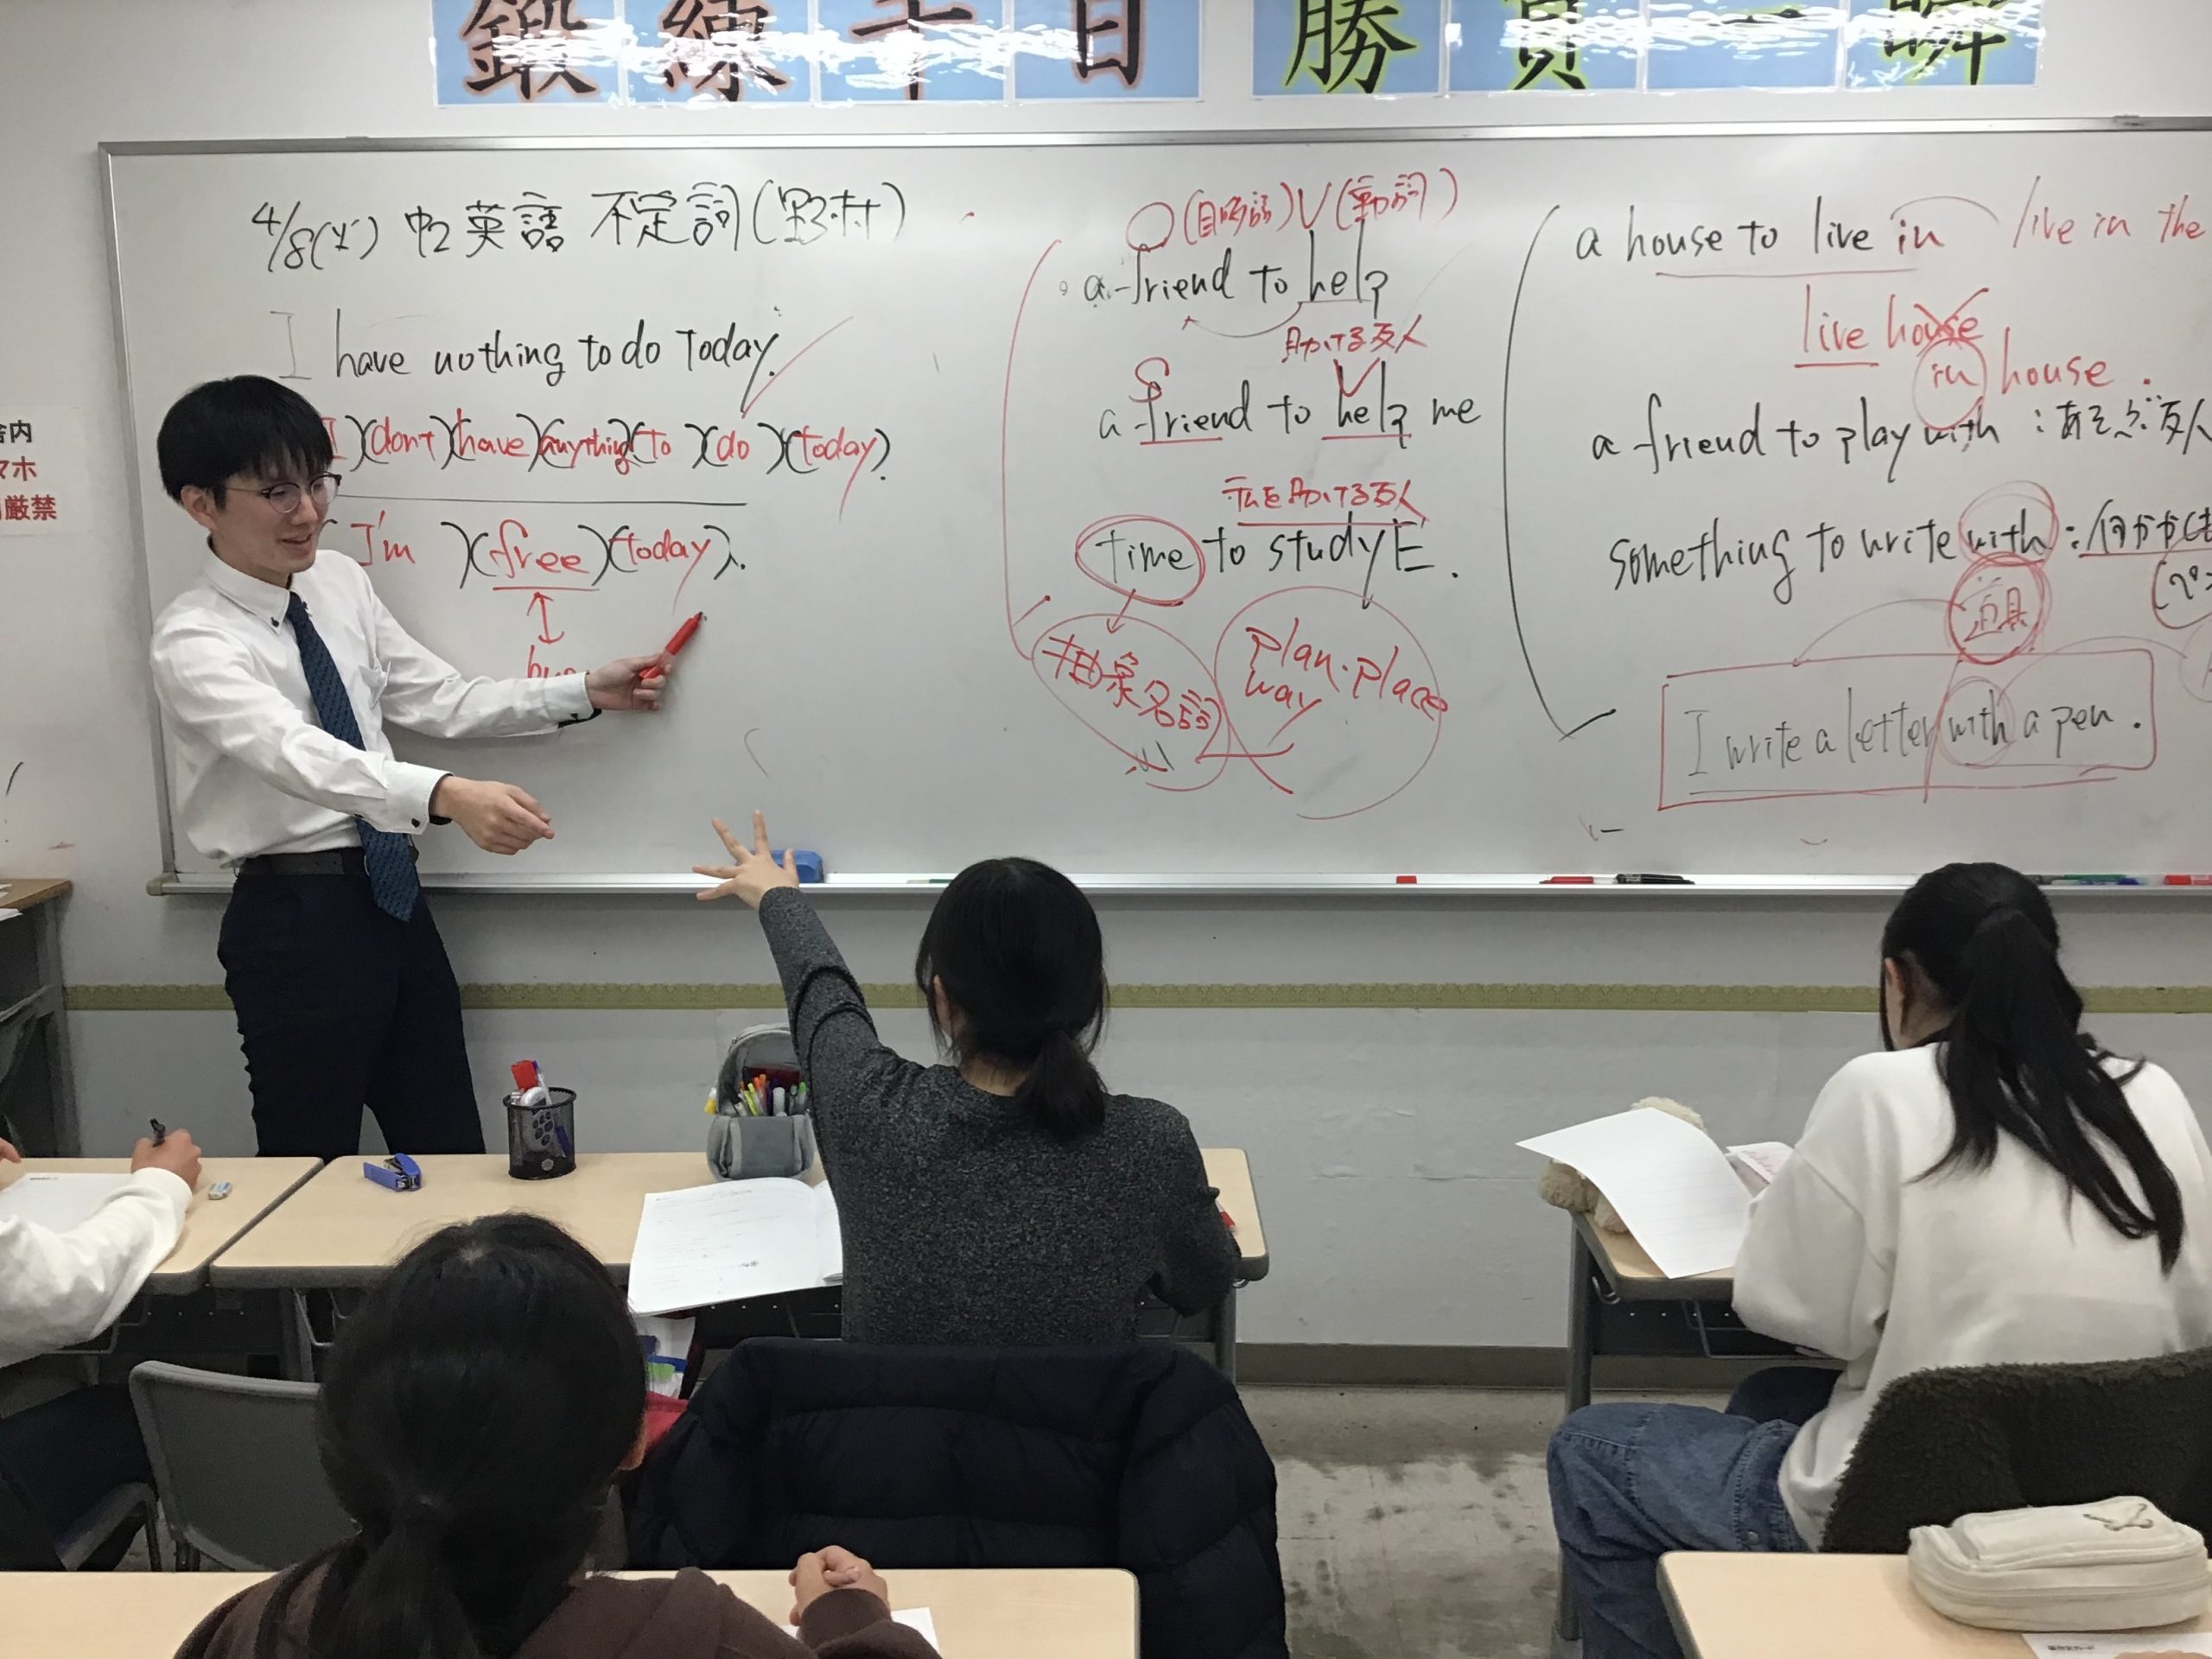 鍛練千日 勝負一瞬
舎内
マホ
厳禁
4/8(火) 中2 英語 不定詞(野村)
I have nothing to do today.
I)(don't)(have)(anything)(to)(do)(today).
(I'm)(free)(today).
O(目的語)V(動詞)
a friend to help
助ける友人
S V
a friend to help me
私を助ける友人
time to study E.
抽象名詞
plan・place
way
a house to live in live in the
live house
in house.
a friend to play with:あそぶ友人
something to write with:何か
道具
I write a letter with a pen.